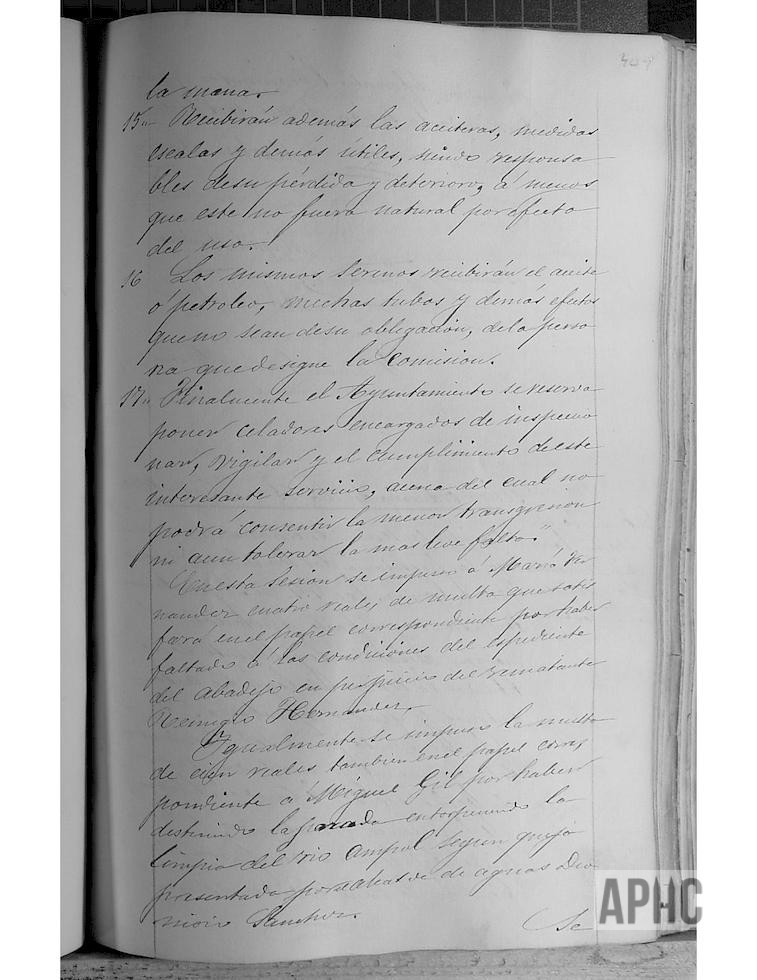 la mana.
15.. Recibirán además las aceiteras, medidas
escalas y demás útiles, siendo responsa
bles desu pérdida y deterioro, á menos
que este no fuera natural por efecto
del uso.
16 Los mismos serenos recibirán el aceite
ó petroleo, mechas tubos y demás efectos
queno sean desu obligación, dela perso
na que designe la Comision.
17.. Finalmente el Ayuntamiento se reserva
poner celadores encargados de inspeccio
nar, vigilar y el cumplimiento deeste
interesante servicio, acerca del cual no
podrá consentir la menor transgresion
ni aun tolerar la mas leve falta."
Enesta sesion se impuso á María Fer
nandez cuatro reales de multa que satis
fará enel papel correspondiente por haber
faltado á las condiciones del espediente
del abadejo en perjuicio del rematante
Remigio Hernandez.
Igualmente se impuso la multa
de cien reales tambien enel papel corres
pondiente a Miguel Gil por haber
destruido la parada entorpeciendo la
limpia del rio Ampol segun queja
presentada por el Alcalde de aguas Dio
nicio Sanchez.
Se
APHC